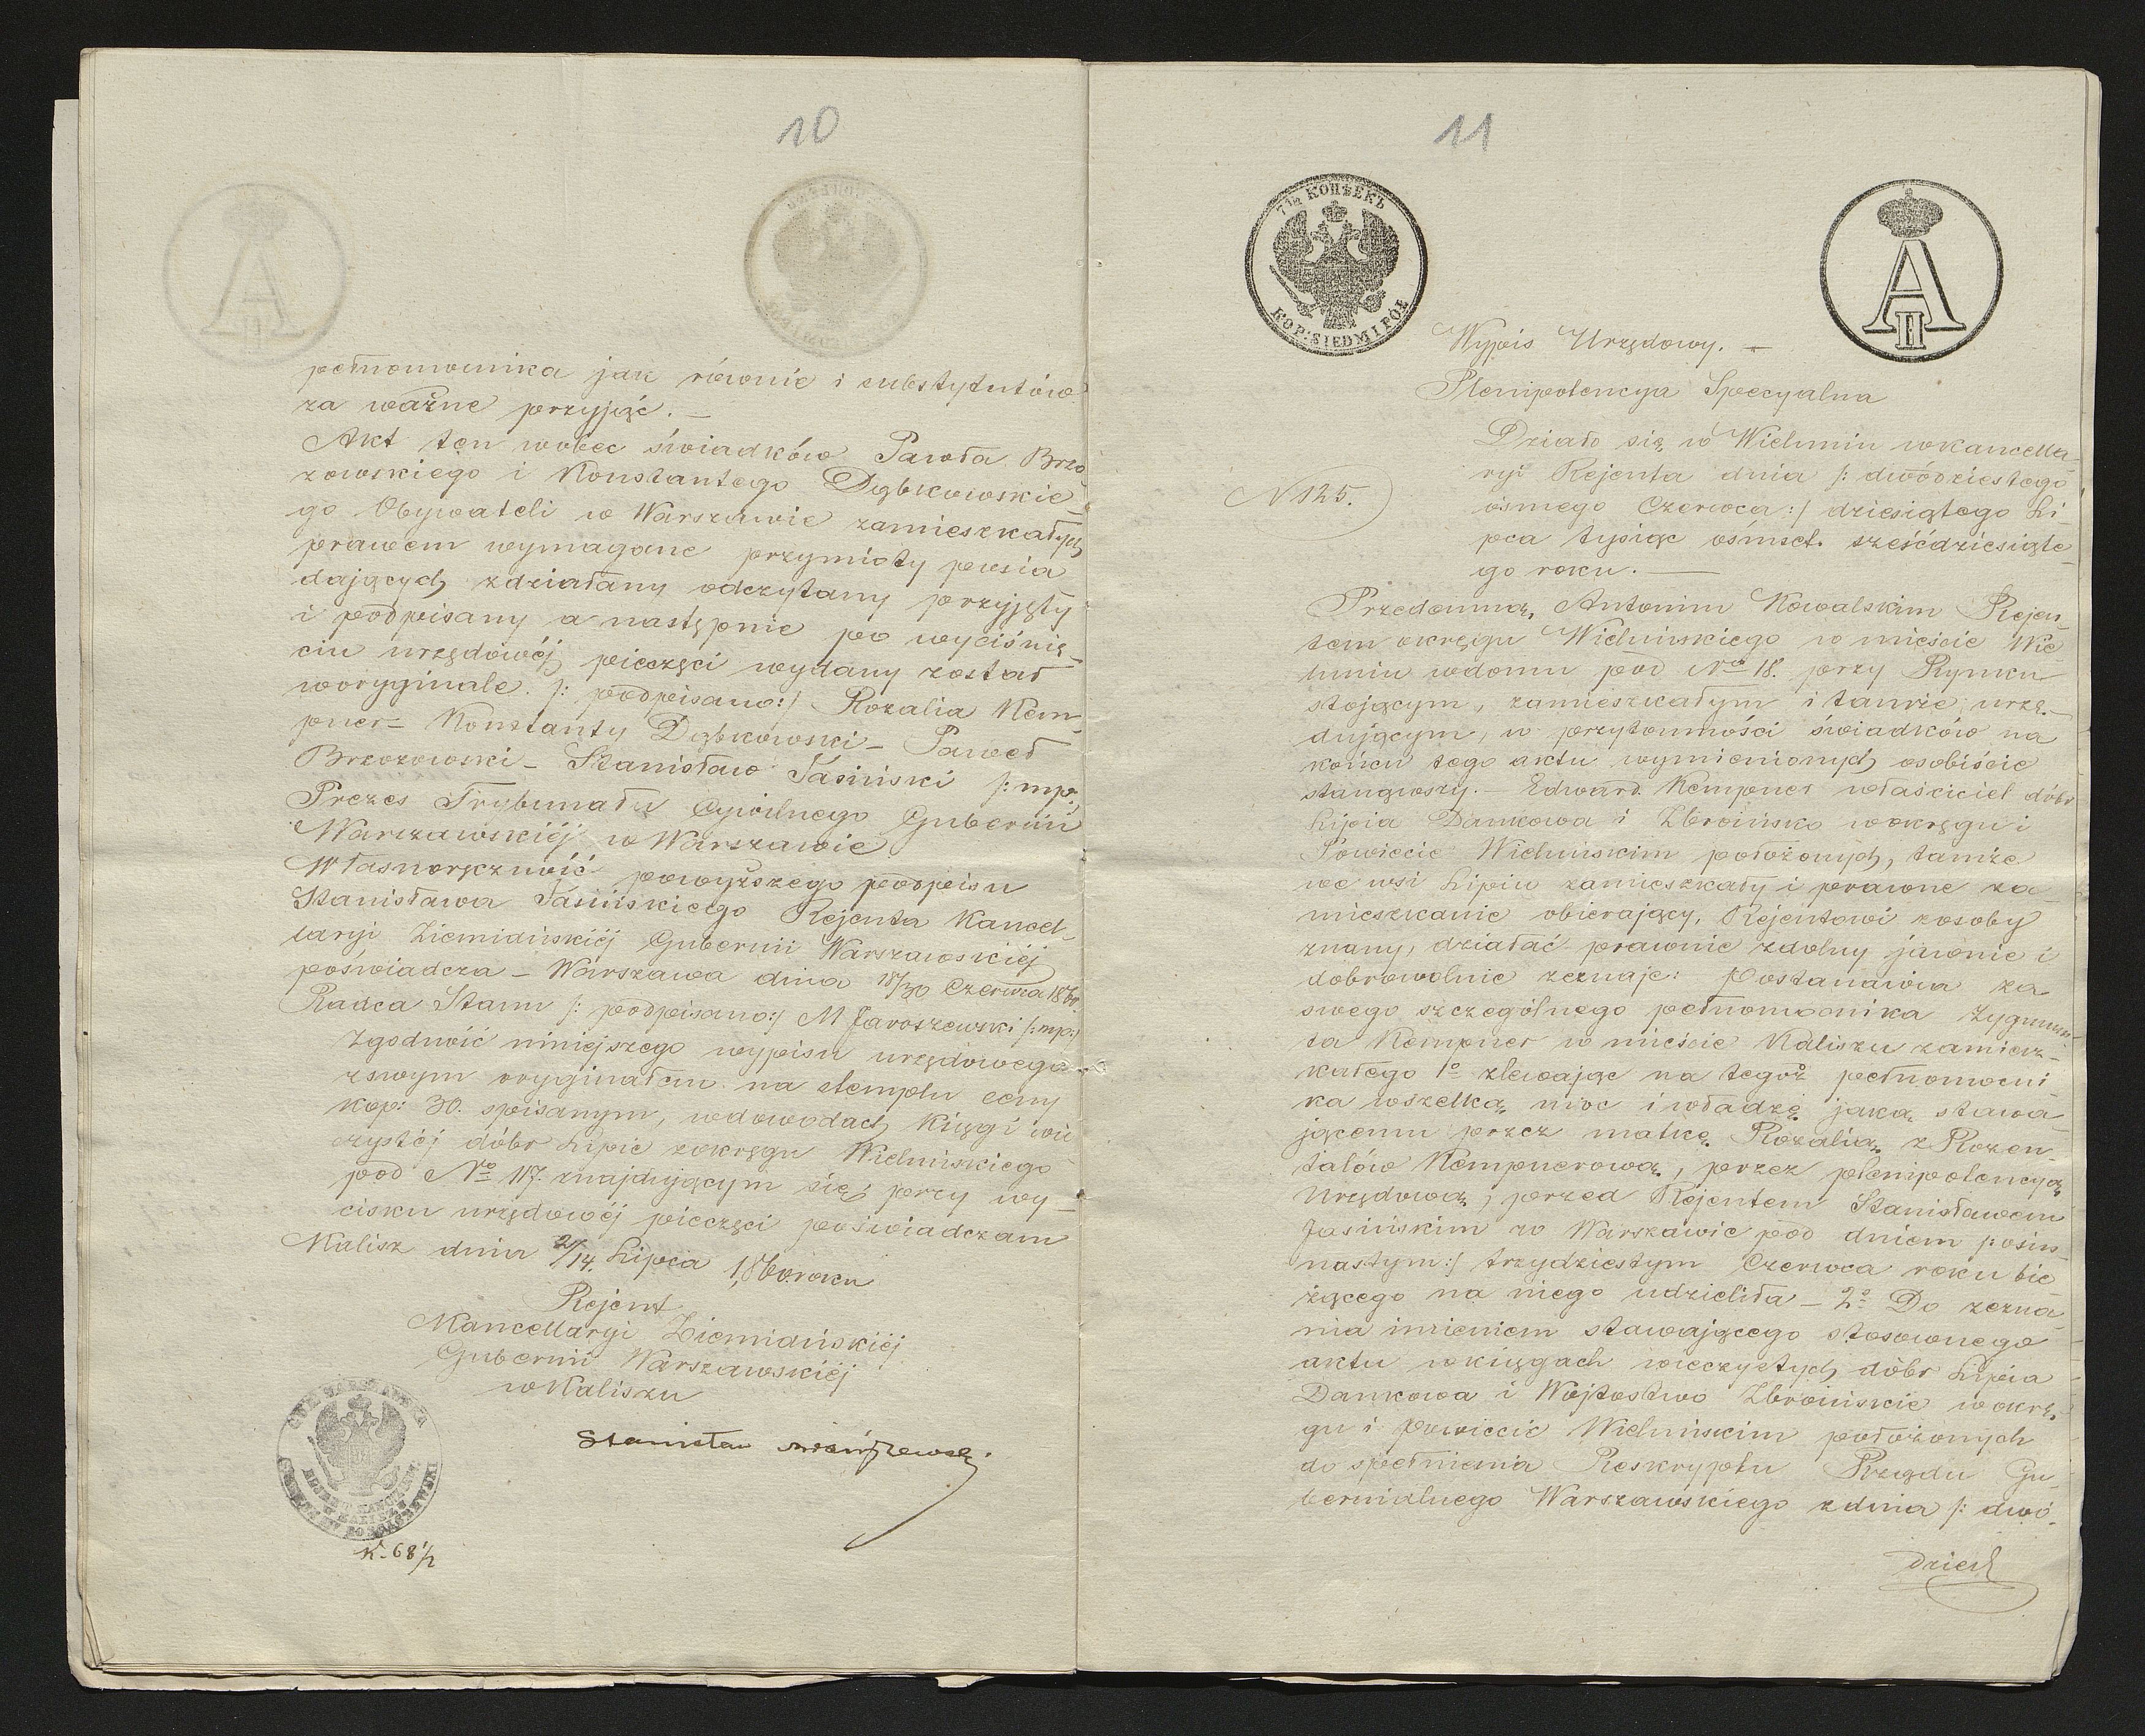 10
pełnomocnika jak rόwnie i substytutów
za ważne przyjąć. —
Akt ten wobec świadków Pawła Brzo
zowskiego i Konstantego Dąbkowskie
go Obywateli w Warszawie zamieszkałych
prawem wymagane przymioty posia
dających zdziałany odczytany przyjęty
i podpisany a następnie po wyciśnię-
ciu urzędowéj pieczęci wydany został
woryginale. /: podpisano:/ Rozalia Kem-
pner – Konstanty Dąbkowski – Paweł
Brzozowski – Stanisław Jasiński /: mp.
Prezes Trybunału Cywilnego Gubernii
Warszawskiéj w Warszawie
Własnoręczność powyższego podpisu
Stanisława Jasińskiego Rejenta Kancel-
laryi Ziemiańskiéj Gubernii Warszawskiéj
poświadcza – Warszawa dnia 18/30 Czerwca 1860
Radca Stanu /: podpisano:/ M Jaroszewski /:mp:/
Zgodność niniejszego wypisu urzędowego
zswym oryginałem na stemplu ceny
kop: 30. spisanym, wdowodach Księgi wie
czystéj dóbr Lipie zokręgu Wieluńskiego
pod No 117. znajdującym się, przy wy-
cisku urzędowéj pieczęci poświadczam
Kalisz dnia 2/14. Lipca 1860. roku
Rejent
Kancellaryi Ziemiańskiéj
Gubernii Warszawskiéj
w Kaliszu
Stanisław
K. 68 1/2
11
7 1/2 КОПѢЕКЪ
KOP: SIEDM I PÓŁ
A II
Wypis Urzędowy. –
Plenipotencya Specyalna
N 125.
Działo się w Wieluniu wkancella-
ryi Rejenta dnia /: dwódziestego
ósmego Czerwca :/ dziesiątego Li-
pca tysiąc ośmset. sześćdziesiąte
go roku. —
Przedemną, Antonim Kowalskim Rejen
tem okręgu Wieluńskiego w mieście Wie
luniu wdomu pod No 18. przy Rynku
stojącym, zamieszkałym i tamże urzę-
dującym, w przytomności świadków na
końcu tego aktu wymienionych osobiście
stanąwszy. – Edward Kempner właściciel dóbr
Lipia Dankowa i Zbroińsko wokręgu i
Powiecie Wieluńskim położonych, tamże
we wsi Lipiu zamieszkały i prawne za
mieszkanie obierający, Rejentowi zosoby
znany, działać prawnie zdolny jawnie i
dobrowolnie zeznaje: Postanawia za
swego szczególnego pełnomocnika Zygmun
ta Kempner w mieście Kaliszu zamiesz-
kałego 1o zlewając na tegoż pełnomocni
ka wszelką moc i władzę jaką stawa-
jącemu przez matkę Rozalią z Rozen-
talów Kempnerową, przez plenipotencyą
Urzędową, przed Rejentem Stanisławem
Jasińskim w Warszawie pod dniem /: ośm
nastym:/ trzydziestym Czerwca roku bie
żącego na niego udzieliła – 2o Do zezna
nia imieniem stawającego stosownego
aktu wksięgach wieczystych dóbr Lipia
Dankowa i Wójtostwo Zbroińskie w okrę-
gu i powiecie Wieluńskim położonych
do spełnienia Reskryptu Rządu Gu-
bernialnego Warszawskiego zdnia /: dwó-
dziest